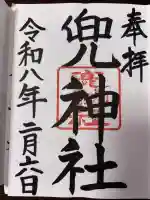 奉拝
兜神社
令和八年二月六日